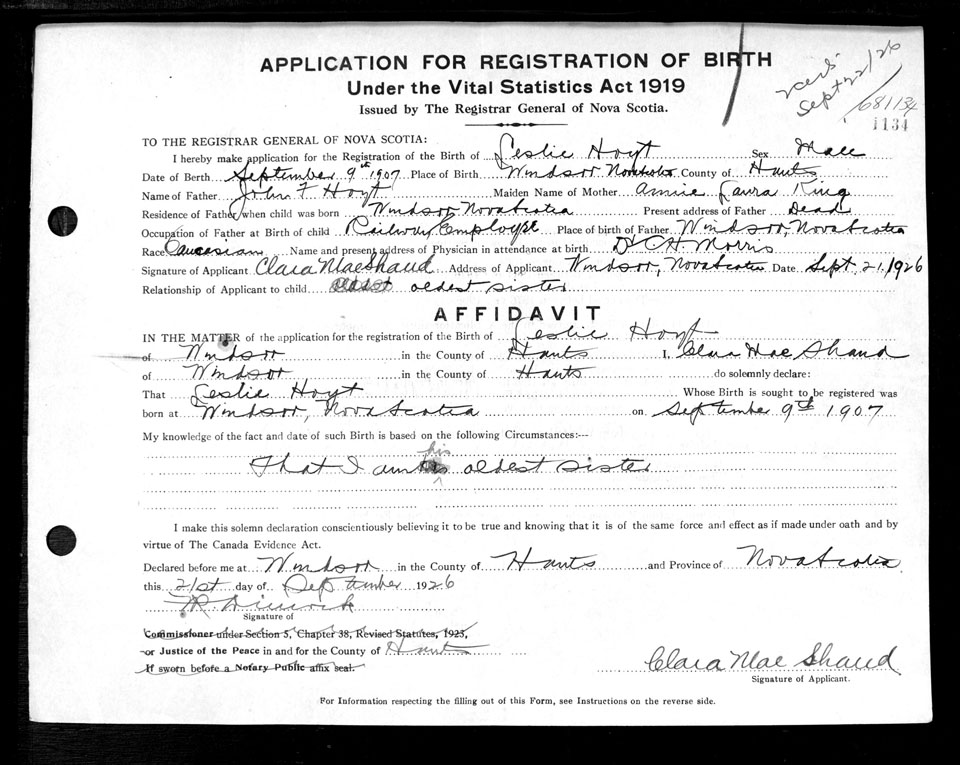 APPLICATION FOR REGISTRATION OF BIRTH
Under the Vital Statistics Act 1919
Issued by The Registrar General of Nova Scotia.
Sept 22/26
681134
1134
TO THE REGISTRAR GENERAL OF NOVA SCOTIA:
I hereby make application for the Registration of the Birth of Leslie Hoyt Sex Male
Date of Berth September 9th 1907 Place of Birth Windsor Nova Scotia County of Hants
Name of Father John F Hoyt Maiden Name of Mother Annie Laura King
Residence of Father when child was born Windsor Nova Scotia Present address of Father Dead
Occupation of Father at Birth of child Railway Employee Place of birth of Father Windsor, Nova Scotia
Race Caucasian Name and present address of Physician in attendance at birth Dr C H Morris
Signature of Applicant Clara Mae Shand Address of Applicant Windsor, Nova Scotia Date Sept. 21, 1926
Relationship of Applicant to child oldest sister
AFFIDAVIT
IN THE MATTER of the application for the registration of the Birth of Leslie Hoyt
of Windsor in the County of Hants I, Clara Mae Shand
of Windsor in the County of Hants do solemnly declare:
That Leslie Hoyt Whose Birth is sought to be registered was
born at Windsor, Nova Scotia on September 9th 1907
My knowledge of the fact and date of such Birth is based on the following Circumstances:--
That I am his oldest sister
I make this solemn declaration conscientiously believing it to be true and knowing that it is of the same force and effect as if made under oath and by
virtue of The Canada Evidence Act.
Declared before me at Windsor in the County of Hants and Province of Nova Scotia
this 21st day of September 1926
Signature of
Commissioner under Section 5, Chapter 38, Revised Statutes, 1923,
or Justice of the Peace in and for the County of Hants
If sworn before a Notary Public affix seal.
Clara Mae Shand
Signature of Applicant.
For Information respecting the filling out of this Form, see Instructions on the reverse side.